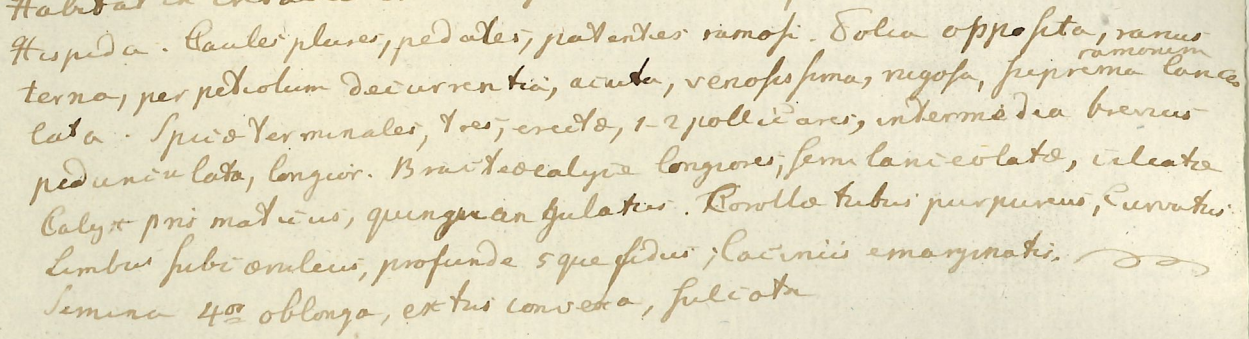 Habitat in
Hispida. Caules plures, pedales, patentes ramosi. Folia opposita, ramis
ramorum
terna, per petiolum decurrentia, acuta, venosissima, rugosa, suprema lanceo
lata. Spicæ terminales, tres, erectæ, 1-2 pollicares, intermedia brevius
pedunculata, longior. Bracteæ calyce longiores, semilanceolatæ, ciliatæ
Calyx prismaticus, quinquangulatus. Corollæ tubus purpureus, curvatus
Limbus subcæruleus, profunde 5que fidus; laciniis emarginatis.
Semina 4or oblonga, extus convexa, sulcata